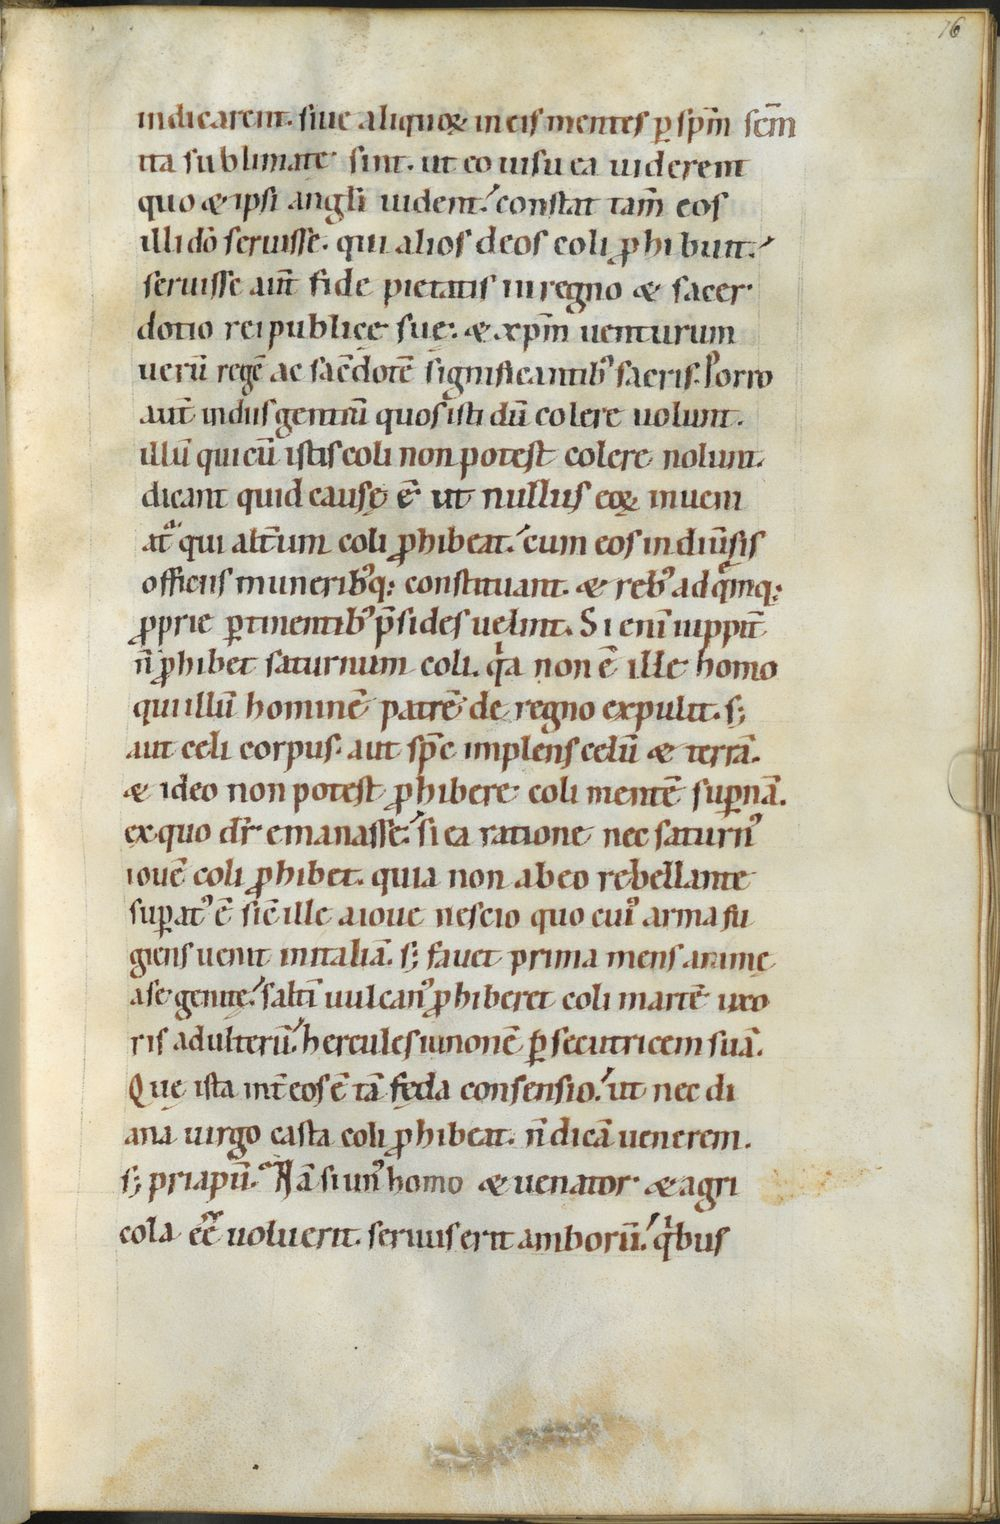 76
indicarent. siue aliquoꝝ in eis mentes ꝑ spm̄ scm̄
ita sublimate sint. ut eo uisu ea uiderent
quo & ipsi angli uident. constat tam̄ eos
illi dō seruisse. qui alios deos coli ꝓhibunt.
seruisse aut̄ fide pietatis in regno & sacer
dotio rei publicę suę. & xp̄m uenturum
uerū regē ac sac̄dotē significantibꝰ sacris. Porro
aut̄ in diis gentiū quos isti dū colere uolunt.
illū qui cū istis coli non potest colere nolunt.
dicant quid causę ē ut nullus eoꝝ inueni
atͣ qui alt̄um coli ꝓhibeat. cum eos in diūsis
officiis muneribꝰq; constituant. & rebꝰ ad qͥmq;
ꝓprie ꝑtinentibꝰ p̄sides uelint. Si enī iuppit̄
n̄ ꝓhibet saturnum coli. qͥa non ē ille homo
qui illū hominē patrē de regno expulit. s;
aut celi corpus. aut sp̄c implens celū & terrā.
& ideo non potest ꝓhibere coli mentē suꝑnā.
ex quo dr̄ emanasse. si ea ratione nec saturnꝰ
iouē coli ꝓhibet. quia non ab eo rebellante
suꝑatꝰ ē sic̄ ille a ioue nescio quo cuiꝰ arma fu
giens uenit in italiā. s; fauet prima mens animę
a se genitę. saltī uulcanꝰ ꝓhiberet coli martē uxo
ris adulterū. hercules iunonē ꝑsecutricem suā.
Que ista int̄ eos ē tā fęda consensio. ut nec di
ana uirgo casta coli ꝓhibeat. n̄ dicā uenerem.
s; priapū. Nā si unꝰ homo & uenator & agri
cola eē uoluerit. seruus erit amborū. qͥbus